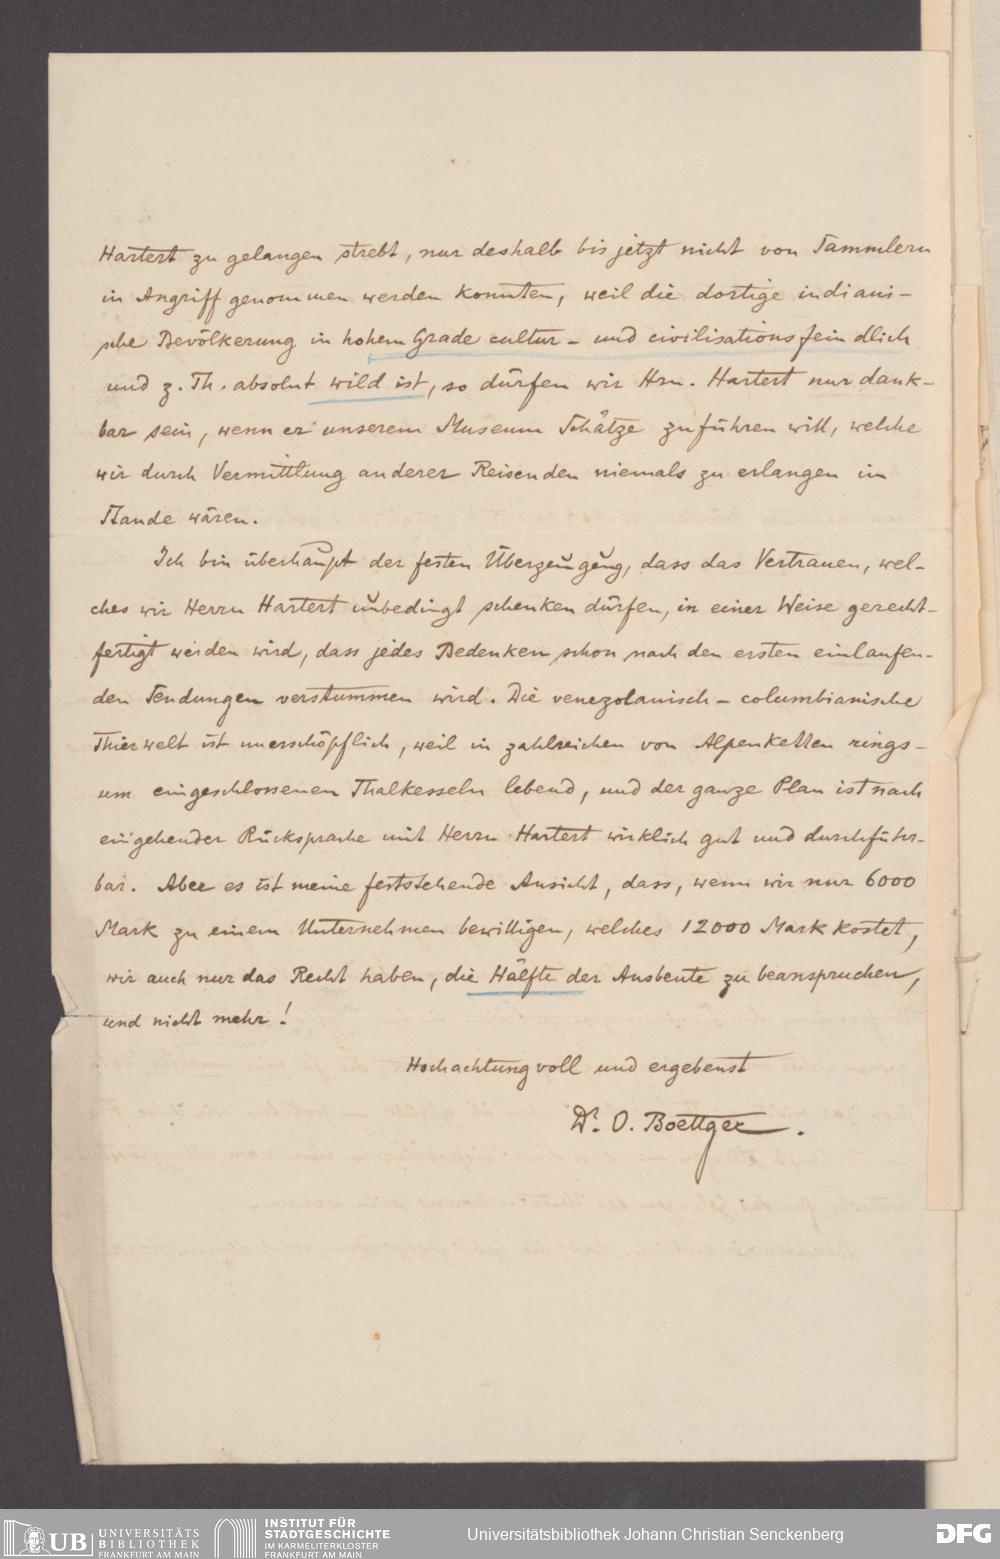 Hartert zu gelangen strebt, nur deshalb bis jetzt nicht von Sammlern
in Angriff genommen werden konnten, weil die dortige indiani-
sche Bevölkerung in hohem Grade cultur- und civilisationsfeindlich
und z. Th. absolut wild ist, so dürfen wir Hrn. Hartert nur dank-
bar sein, wenn er unserem Museum Schätze zuführen will, welche
wir durch Vermittlung anderer Reisenden niemals zu erlangen im
Stande wären.
Ich bin überhaupt der festen Überzeugung, dass das Vertrauen, wel-
ches wir Herrn Hartert unbedingt schenken dürfen, in einer Weise gerecht-
fertigt werden wird, dass jedes Bedenken schon nach den ersten einlaufen-
den Sendungen verstummen wird. Die venezolanisch-columbianische
Thierwelt ist unerschöpflich, weil in zahlreichen von Alpenketten rings-
um eingeschlossenen Thalkesseln lebend, und der ganze Plan ist nach
eingehender Rücksprache mit Herrn Hartert wirklich gut und durchführ-
bar. Aber es ist meine feststehende Ansicht, dass, wenn wir nur 6000
Mark zu einem Unternehmen bewilligen, welches 12000 Mark kostet,
wir auch nur das Recht haben, die Hälfte der Ausbeute zu beanspruchen,
und nicht mehr!
Hochachtungvoll und ergebenst
Dr. O. Boettger.
UB UNIVERSITÄTS
BIBLIOTHEK
FRANKFURT AM MAIN
INSTITUT FÜR
STADTGESCHICHTE
IM KARMELITERKLOSTER
FRANKFURT AM MAIN
Universitätsbibliothek Johann Christian Senckenberg
DFG